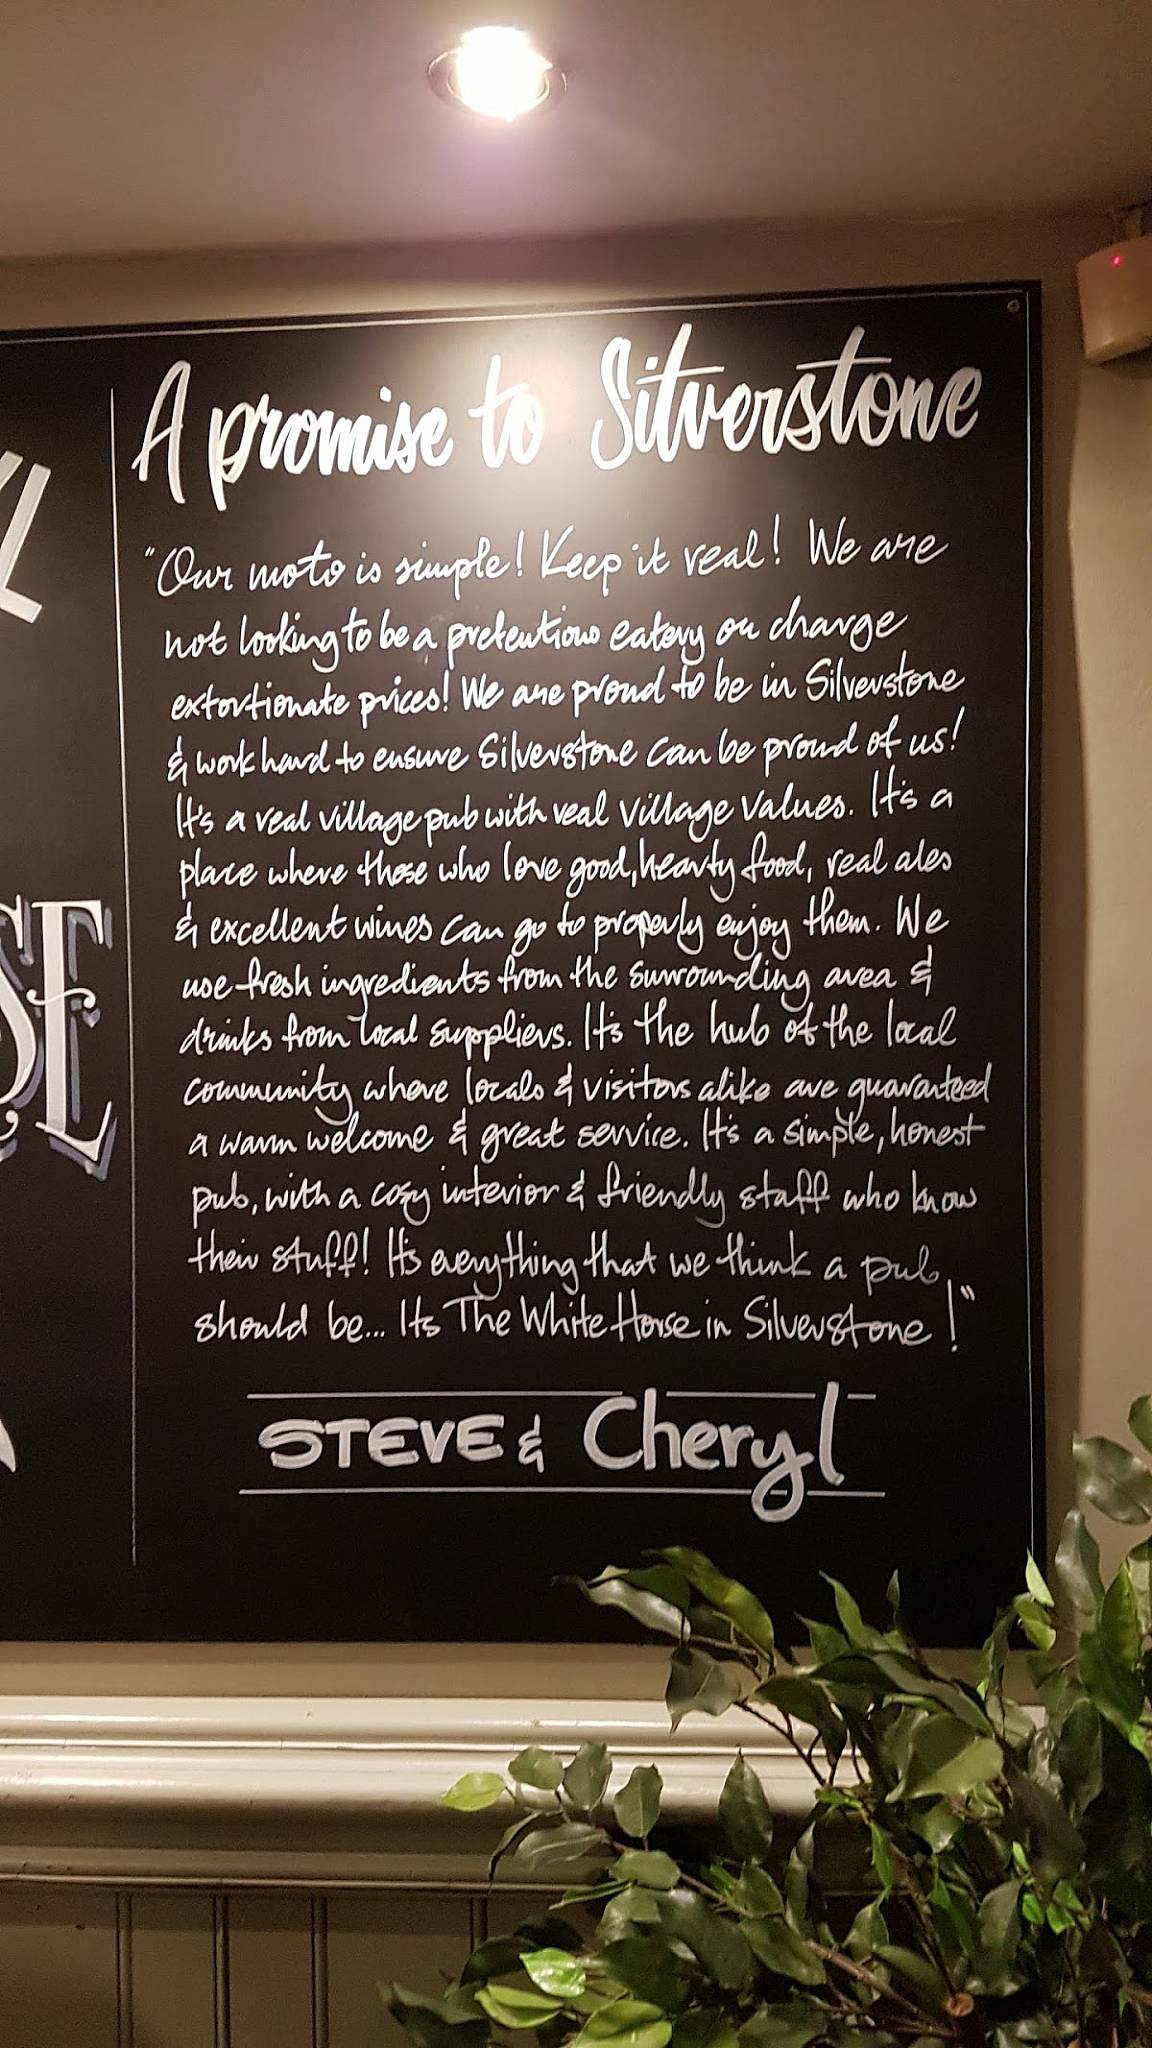 A promise to Silverstone
"Our moto is simple! Keep it real! We are
not looking to be a pretentious eatery or charge
extortionate prices! We are proud to be in Silverstone
& work hard to ensure Silverstone can be proud of us!
It's a real village pub with real village values. It's a
place where those who love good, hearty food, real ales
& excellent wines can go to properly enjoy them. We
use fresh ingredients from the surrounding area &
drinks from local suppliers. It's the hub of the local
community where locals & visitors alike are guaranteed
a warm welcome & great service. It's a simple, honest
pub, with a cosy interior & friendly staff who know
their stuff! It's everything that we think a pub
should be... Its The White Horse in Silverstone!"
STEVE & Cheryl